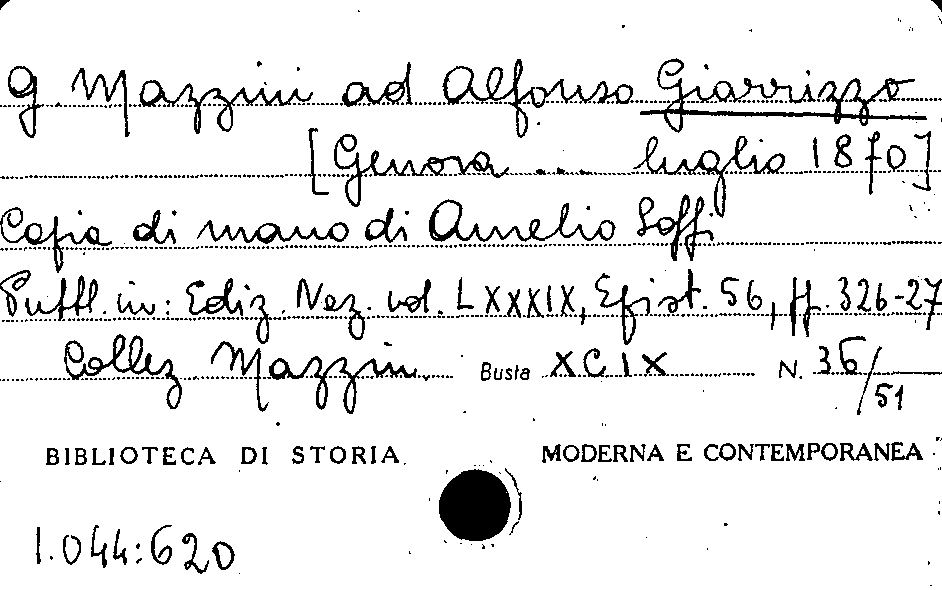 G. Mazzini ad Alfonso Giarrizzo
[Genova ... luglio 1870]
Copia di mano di Aurelio Saffi
Pubbl. in: Ediz. Naz. vol. LXXXIX, Epist. 56, pp. 326-27
Collez Mazzini Busta XCIX N. 36/51
BIBLIOTECA DI STORIA MODERNA E CONTEMPORANEA
1.044:620